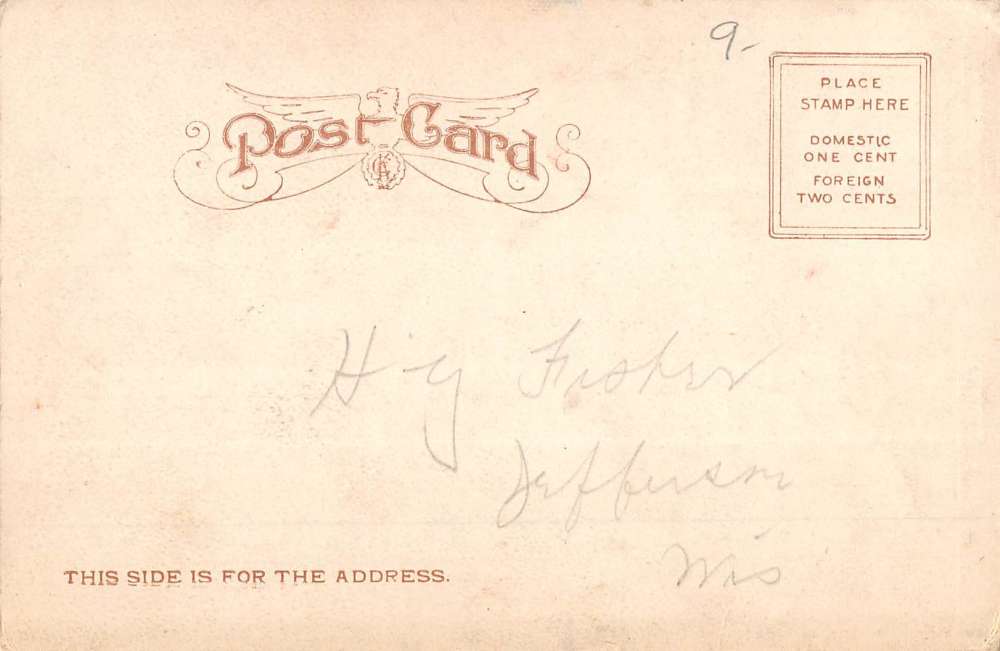 9-
Post Card
PLACE
STAMP HERE
DOMESTIC
ONE CENT
FOREIGN
TWO CENTS
Hy Fisher
Jefferson
Wis
THIS SIDE IS FOR THE ADDRESS.